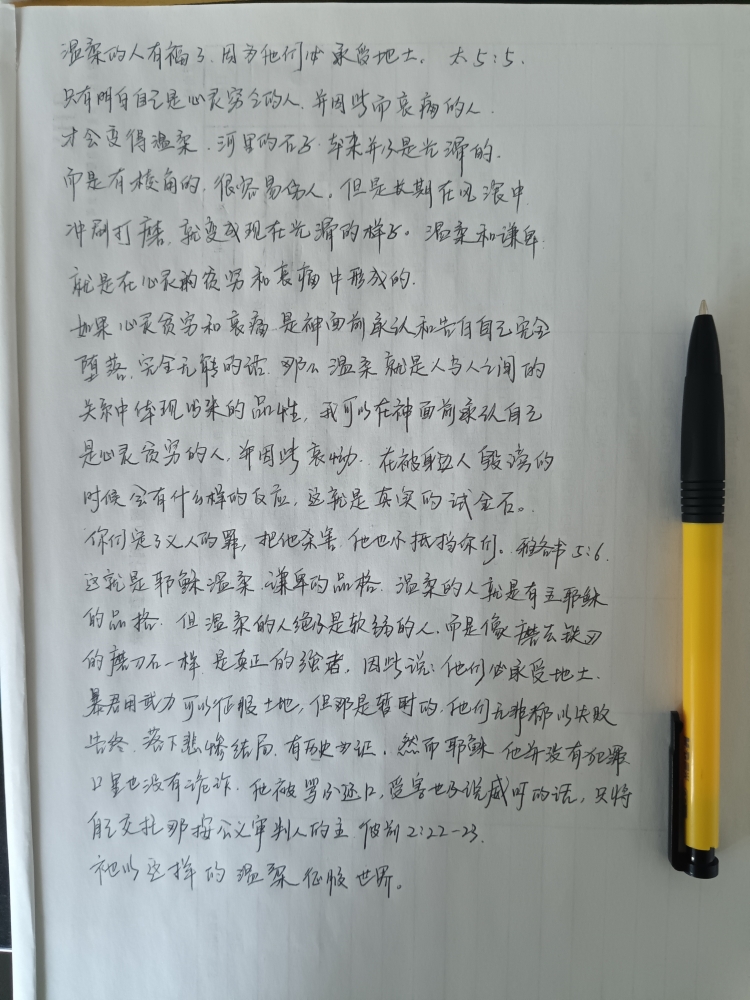 温柔的人有福了、因为他们必承受地土。 太5:5.
只有明白自己是心灵穷乏的人、并因此而哀痛的人、
才会变得温柔、河里的石子、本来并不是光滑的、
而是有棱角的、很容易伤人。但是长期在风浪中
冲刷打磨、就变成现在光滑的样子。温柔和谦卑
就是在心灵的贫穷和哀痛中形成的、
如果心灵贫穷和哀痛是神面前承认和告白自己完全
堕落、完全无能的话、那么温柔就是人与人之间的
关系中体现出来的品性、我可以在神面前承认自己
是心灵贫穷的人、并因此哀恸、在被身边人毁谤的
时候会有什么样的反应、这就是真实的试金石。
你们定了义人的罪、把他杀害、他也不抵挡你们。雅各书5:6.
这就是耶稣温柔、谦卑的品格、温柔的人就是有主耶稣
的品格、但温柔的人绝不是软弱的人、而是像磨去铁刃
的磨刀石一样、是真正的强者、因此说:他们必承受地土、
暴君用武力可以征服土地、但那是暂时的、他们无非都以失败
告终、落下悲惨结局、有历史为证。然而耶稣他并没有犯罪
口里也没有诡诈、他被骂不还口、受害也不说威吓的话、只将
自己交托那按公义审判人的主、彼前2:22-23.
祂以这样的温柔征服世界。
MORN